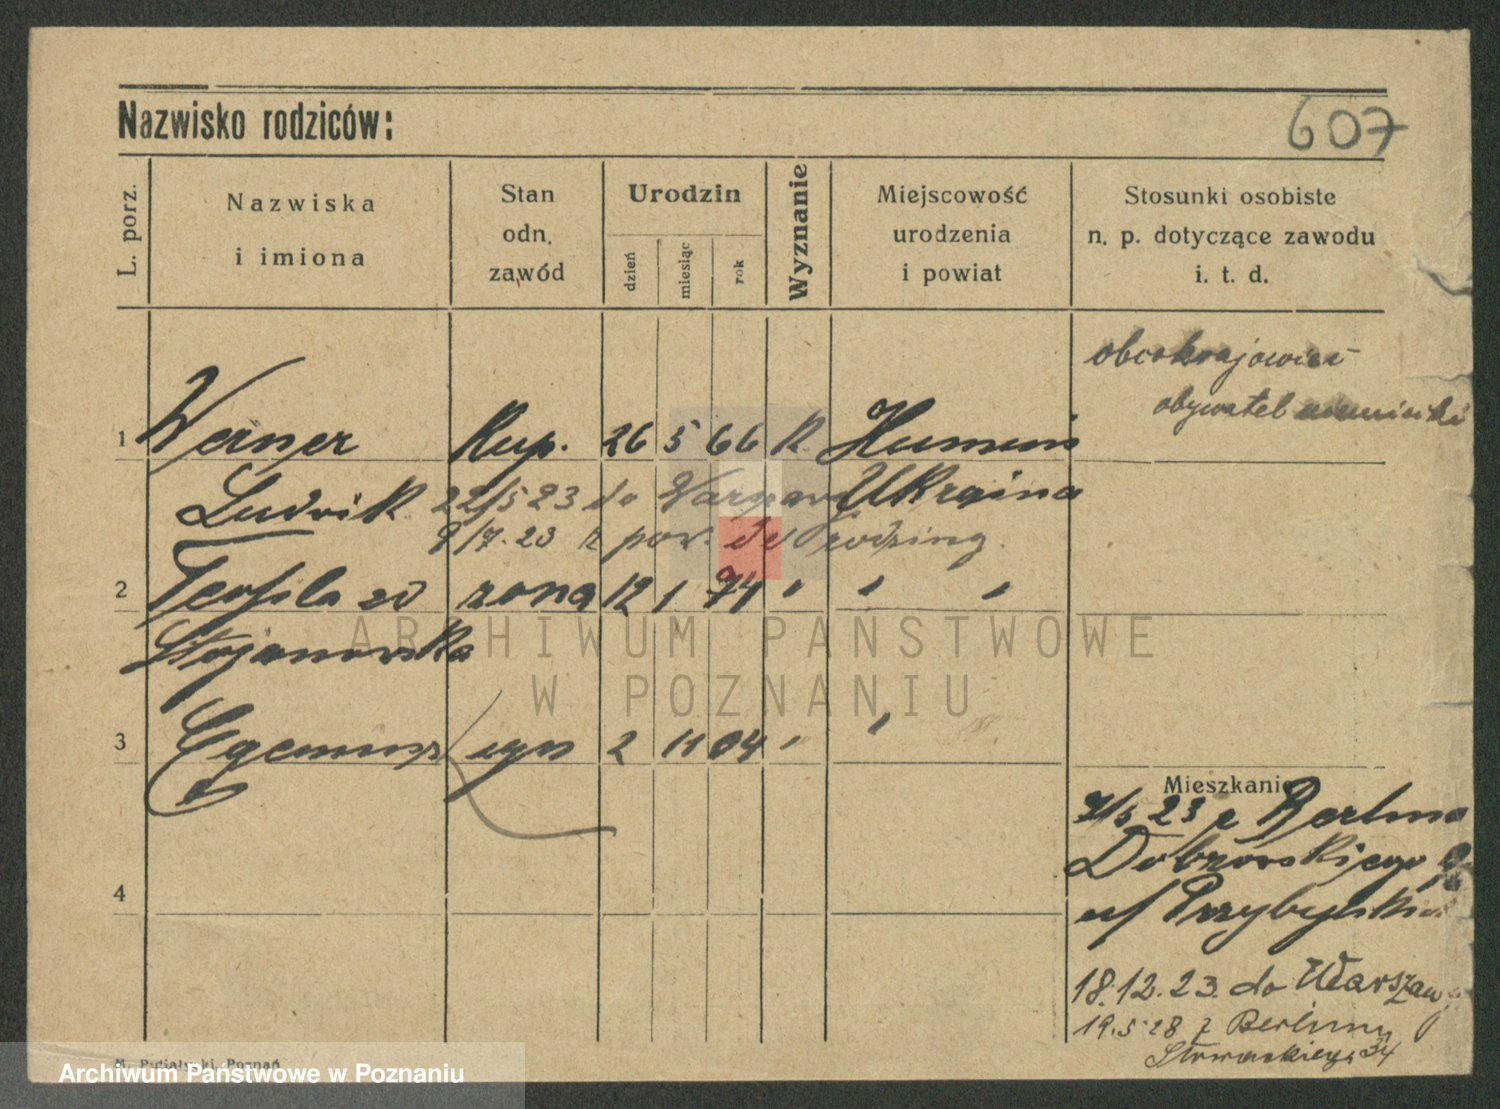 Nazwisko rodziców:
607
L. porz.
Nazwiska
i imiona
Stan
odn.
zawód
Urodzin
dzień
miesiąc
rok
Wyznanie
Miejscowość
urodzenia
i powiat
Stosunki osobiste
n. p. dotyczące zawodu
i. t. d.
obcokrajowiec
obywatel
1 Werner Kup. 26 5 66 k Humań
Ludwik 22/5 23 do Warszawy Ukraina
9/7. 23 z pow. do rodziny.
2 Teofila zd żona 12 1 74 " " "
Stojanowska
3 syn 2 11 04 " "
4
Mieszkanie
7/5 23 z Berlina
u/ Przybylski
18.12.23. do Warszawy
19.5 28 z Berlina
Słowackiego 34
ARCHIWUM PAŃSTWOWE
W POZNANIU
Archiwum Państwowe w Poznaniu